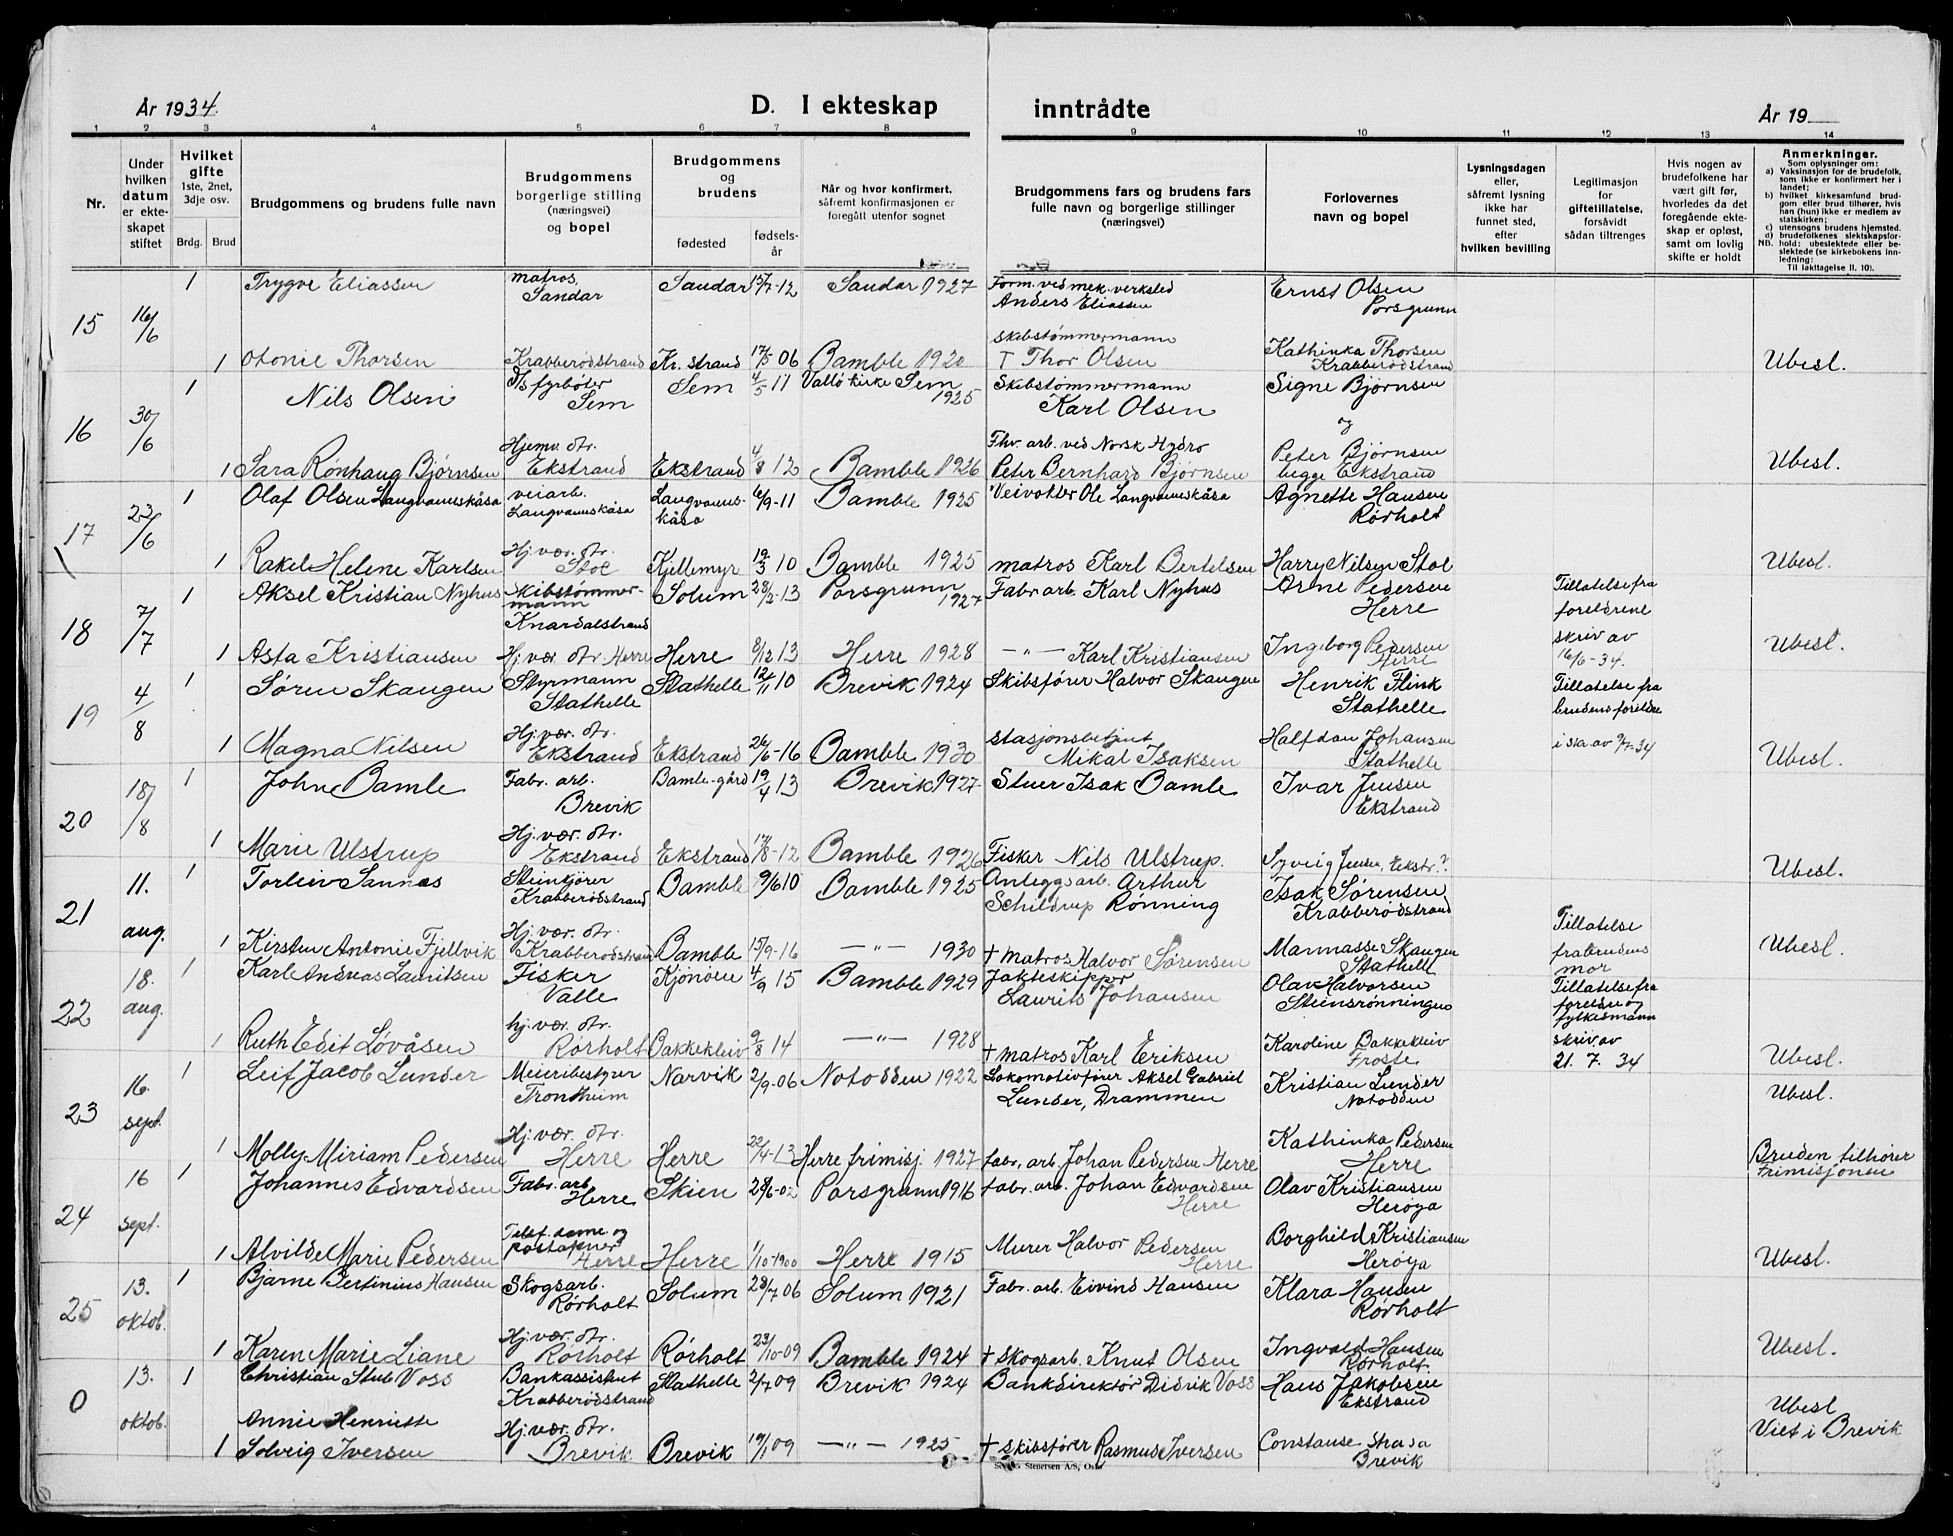 År 1934.
D. I ekteskap inntrådte
År 19
1 2 3 4 5 6 7 8 9 10 11 12 13 14
Nr.
Under hvilken datum er ekteskapet stiftet
Hvilket gifte 1ste, 2net, 3dje osv.
Brdg. Brud
Brudgommens og brudens fulle navn
Brudgommens borgerlige stilling (næringsvei) og bopel
Brudgommens og brudens
fødested
fødselsår
Når og hvor konfirmert, såfremt konfirmasjonen er foregått utenfor sognet
Brudgommens fars og brudens fars fulle navn og borgerlige stillinger (næringsvei)
Forlovernes navn og bopel
Lysningsdagen eller, såfremt lysning ikke har funnet sted, efter hvilken bevilling
Legitimasjon for giftetillatelse, forsåvidt sådan tiltrenges
Hvis nogen av brudefolkene har vært gift før, hvorledes da det foregående ekteskap er opløst, samt om lovlig skifte er holdt
Anmerkninger.
Som oplysninger om:
a) Vaksinasjon for de brudefolk, som ikke er konfirmert her i landet;
b) hvilket kirkesamfund brudgom eller brud tilhører, hvis han (hun) ikke er medlem av statskirken;
c) utensogns brudens hjemsted.
d) brudefolkenes slektskapsforhold: ubeslektede eller beslektede (se kirkebokens innledning:
NB.
Til iakttagelse II. 10).
15 16/6 1 Trygve Eliassen matros Sandar Sandar 15/7-12 Sandar 1927 Form. ved mek. verksted Anders Eliassen Ernst Olsen Porsgrunn
1 Otonie Thorsen Krabberødstrand Kr. strand 17/5 06 Bamble 1920 skibstømmermann † Thor Olsen Kathinka Thorsen Krabberødstrand Ubesl.
16 30/6 1 Nils Olsen fyrbøter Sem Sem 4/5 11 Vallø kirke Sem 1925 Skibstømmermann Karl Olsen Signe Bjørnsen
og
1 Sara Rønhaug Bjørnsen Hjemv. dtr. Ekstrand Ekstrand 4/8 12 Bamble 1926 Fhv. arb. ved Norsk Hydro Peter Bernhard Bjørnsen Peter Bjørnsen begge Ekstrand Ubesl.
17 23/6 1 Olaf Olsen Langvannskåsa veiarb. Langvannskåsa Langvannskåsa 6/9-11 Bamble 1925 Veivokter Ole Langvannskåsa Agnette Hansen Rørholt
1 Rakel Helene Karlsen Hj. vær. dtr. Stoe Kjellemyr 19/3 10 Bamble 1925 matros Karl Bertelsen Harry Nilsen Stol Ubesl.
18 7/7 1 Aksel Kristian Nyhus Skibstømmermann Knardalstrand Solum 28/3-13 Porsgrunn 1927 Fabr arb. Karl Nyhus Arne Pedersen Herre Tillatelse fra foreldrene
1 Asta Kristiansen Hj. vær. dtr. Herre Herre 8/12 13 Herre 1928 —"— Karl Kristiansen Ingeborg Pedersen Herre skriv av 16/6-34. Ubesl.
19 4/8 1 Søren Skaugen Styrmann Stathelle Stathelle 12/11 10 Brevik 1924 Skibsfører Halvor Skaugen Henrik Flink Stathelle Tillatelse fra brudens foreldre
1 Magna Nilsen Hj. vær. dtr. Ekstrand Ekstrand 26/6-16 Bamble 1930 stasjonsbetjent Mikal Isaksen Halfdan Johansen Stathelle i skr av 9/7-34 Ubesl.
20 18/8 1 John Bamle Fabr. arb. Brevik Bamle-gård 19/4 13 Brevik 1927 Stuer Isak Bamle Ivar Jensen Ekstrand
1 Marie Ulstrup Hj. vær. dtr. Ekstrand Ekstrand 17/8-12 Bamble 1926 Fisker Nils Ulstrup. Jensen, Ekstr. Ubesl.
21 11. aug. 1 Torleiv Sannes Steinkjører Krabberødstrand Bamble 9/6 10 Bamble 1925 Anleggsarb. Arthur Schildrup Rønning Isak Sørensen Krabberødstrand
1 Kirsten Antonie Fjellvik Hj. vær. dtr. Krabberødstrand Bamble 15/9-16 —"— 1930 † matros Halvor Sørensen Mannasse Skaugen Stathelle Tillatelse fra brudens mor Ubesl.
22 18. aug. 1 Karl Andreas Lauritsen Fisker Valle Kjønøen 4/9 15 Bamble 1929 Jakteskipper Laurits Johansen Olav Halvorsen Steinsrønningen Tillatelse fra foreldre og fylkesmann
1 Ruth Edit Løvåsen hj. vær. dtr. Rørholt Bakkekleiv 9/8 14 —"— 1928 † matros Karl Eriksen Karoline Bakkekleiv Froste skriv av 21. 7. 34 Ubesl.
23 16 sept. 1 Leif Jacob Lunder Meieribestyrer Trondheim Narvik 2/9-06 Notodden 1922 Lokomotivfører Aksel Gabriel Lunder, Drammen Kristian Lunder Notodden Ubesl.
1 Molly Miriam Pedersen Hj. vær. dtr. Herre Herre 22/4-13 Herre frimisj. 1927 fabr. arb. Johan Pedersen Herre Kathinka Pedersen Herre Bruden tilhører Frimisjonen
24 16 sept. 1 Johannes Edvardsen Fabr. arb. Herre Skien 28/6-02 Porsgrunn 1916 fabr. arb. Johan Edvardsen Herre Olav Kristiansen Herøya
1 Alvilde Marie Pedersen Telef. dame og poståpner Herre Herre 1/10-1900 Herre 1915 Murer Halvor Pedersen Herre Borghild Kristiansen Herøya Ubesl.
25 13. oktob. 1 Bjarne Bertinius Hansen Skogsarb. Rørholt Solum 28/7 06 Solum 1921 Fabr. arb. Eivind Hansen Klara Hansen Rørholt
1 Karen Marie Liane Hj. vær. dtr. Rørholt Rørholt 23/10-09 Bamble 1924 † skogsarb. Knut Olsen Ingvald Hansen Rørholt Ubesl.
0 13. oktob. 1 Christian Stub Voss Bankassistent Krabberødstrand Stathelle 2/7 09 Brevik 1924 Bankdirektør Didrik Voss Hans Jakobsen Ekstrand Ubesl
1 Annie Henriette Solveig Iversen Hj. vær. dtr. Brevik Brevik 19/1 09 —"— 1925 † skibsfører Rasmus Iversen Constanse Brevik Viet i Brevik
Stenersen A/S, Oslo